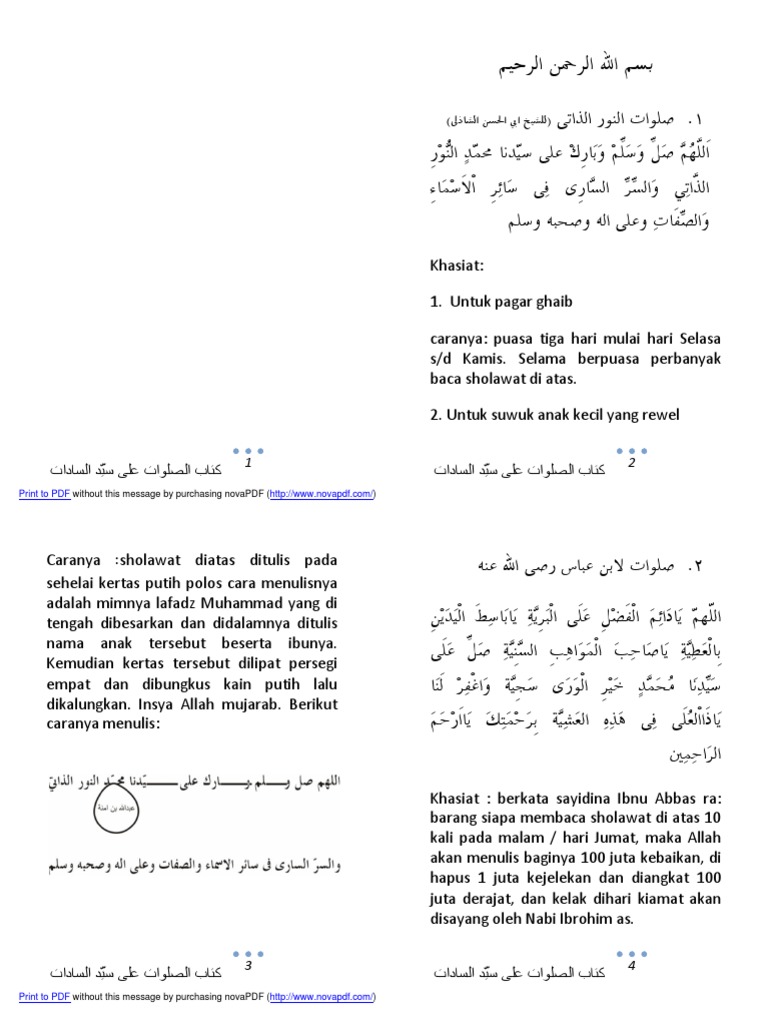 كتاب الصلوات على سيّد السادات
1
Print to PDF without this message by purchasing novaPDF (http://www.novapdf.com/)
بسم الله الرحمن الرحيم
١. صلوات النور الذاتى (للشيخ ابي الحسن الشاذلى)
اَللّٰهُمَّ صَلِّ وَسَلِّمْ وَبَارِكْ على سيّدنا محمّدٍ النُّوْرِ
الذَّاتِي وَالسِّرِّ السَّارِى فِى سَائِرِ الْاَسْمَاءِ
وَالصِّفَاتِ وعلى اله وصحبه وسلم
Khasiat:
1. Untuk pagar ghaib
caranya: puasa tiga hari mulai hari Selasa
s/d Kamis. Selama berpuasa perbanyak
baca sholawat di atas.
2. Untuk suwuk anak kecil yang rewel
كتاب الصلوات على سيّد السادات
2
Caranya :sholawat diatas ditulis pada
sehelai kertas putih polos cara menulisnya
adalah mimnya lafadz Muhammad yang di
tengah dibesarkan dan didalamnya ditulis
nama anak tersebut beserta ibunya.
Kemudian kertas tersebut dilipat persegi
empat dan dibungkus kain putih lalu
dikalungkan. Insya Allah mujarab. Berikut
caranya menulis:
اللهم صل وسلم وبارك على سيّدنا محمّد النور الذاتيّ
عبدالله بن امنة
والسرّ السارى فى سائر الاسماء والصفات وعلى اله وصحبه وسلم
كتاب الصلوات على سيّد السادات
3
Print to PDF without this message by purchasing novaPDF (http://www.novapdf.com/)
٢. صلوات لابن عباس رضى الله عنه
اللّهمّ يَادَائِمَ الْفَضْلِ عَلَى الْبَرِيَّةِ يَابَاسِطَ الْيَدَيْنِ
بِالْعَطِيَّةِ يَاصَاحِبَ الْمَوَاهِبِ السَّنِيَّةِ صَلِّ عَلَى
سَيِّدِنَا مُحَمَّدٍ خَيْرِ الْوَرَى سَجِيَّة وَاغْفِرْ لَنَا
يَاذَاالْعُلَى فِى هَذِهِ الْعَشِيَّة بِرَحْمَتِكَ يَااَرْحَمَ
الرَاحِمِين
Khasiat : berkata sayidina Ibnu Abbas ra:
barang siapa membaca sholawat di atas 10
kali pada malam / hari Jumat, maka Allah
akan menulis baginya 100 juta kebaikan, di
hapus 1 juta kejelekan dan diangkat 100
juta derajat, dan kelak dihari kiamat akan
disayang oleh Nabi Ibrohim as.
كتاب الصلوات على سيّد السادات
4